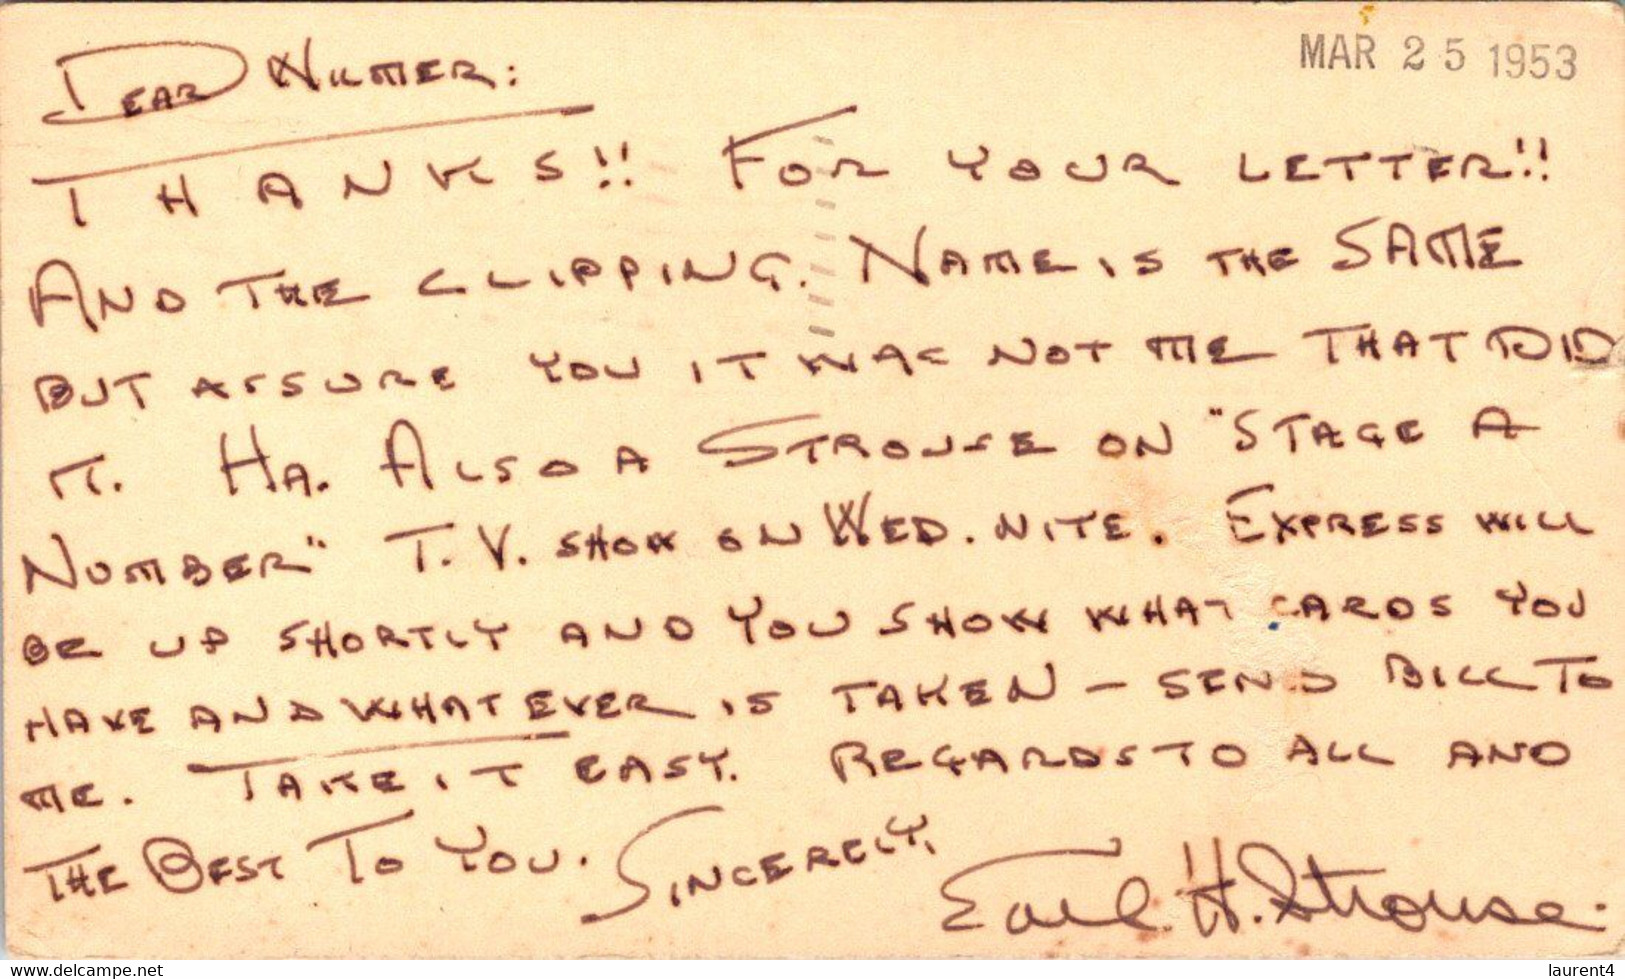 MAR 25 1953
DEAR WILMER:
THANKS!! FOR YOUR LETTER!!
AND THE CLIPPING. NAME IS THE SAME
BUT ASSURE YOU IT WAS NOT ME THAT DID
IT. HA. ALSO A STROUSE ON "STAGE A
NUMBER" T.V. SHOW ON WED. NITE. EXPRESS WILL
BE UP SHORTLY AND YOU SHOW WHAT CARDS YOU
HAVE AND WHAT EVER IS TAKEN - SEND BILL TO
ME. TAKE IT EASY. REGARDS TO ALL AND
THE BEST TO YOU. SINCERELY,
Earl H. Strouse.
www.delcampe.net
laurent4